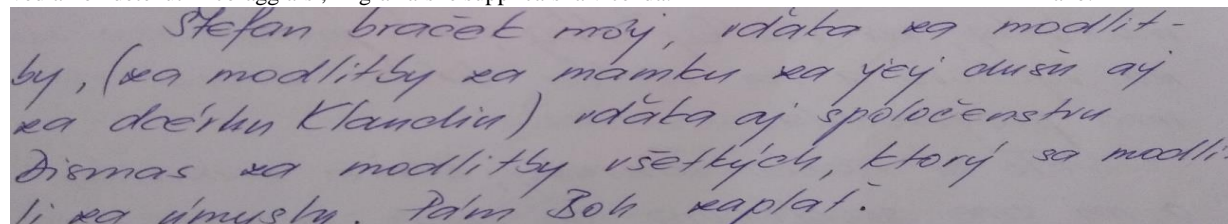 Štefan braček môj, vďaka za modlit-
by, (za modlitby za mamku za jej dušu aj
za dcérku Klaudiu) vďaka aj spoločenstvu
Dismas za modlitby všetkých, ktorý sa modli-
li za úmysly. Pán Boh zaplať.